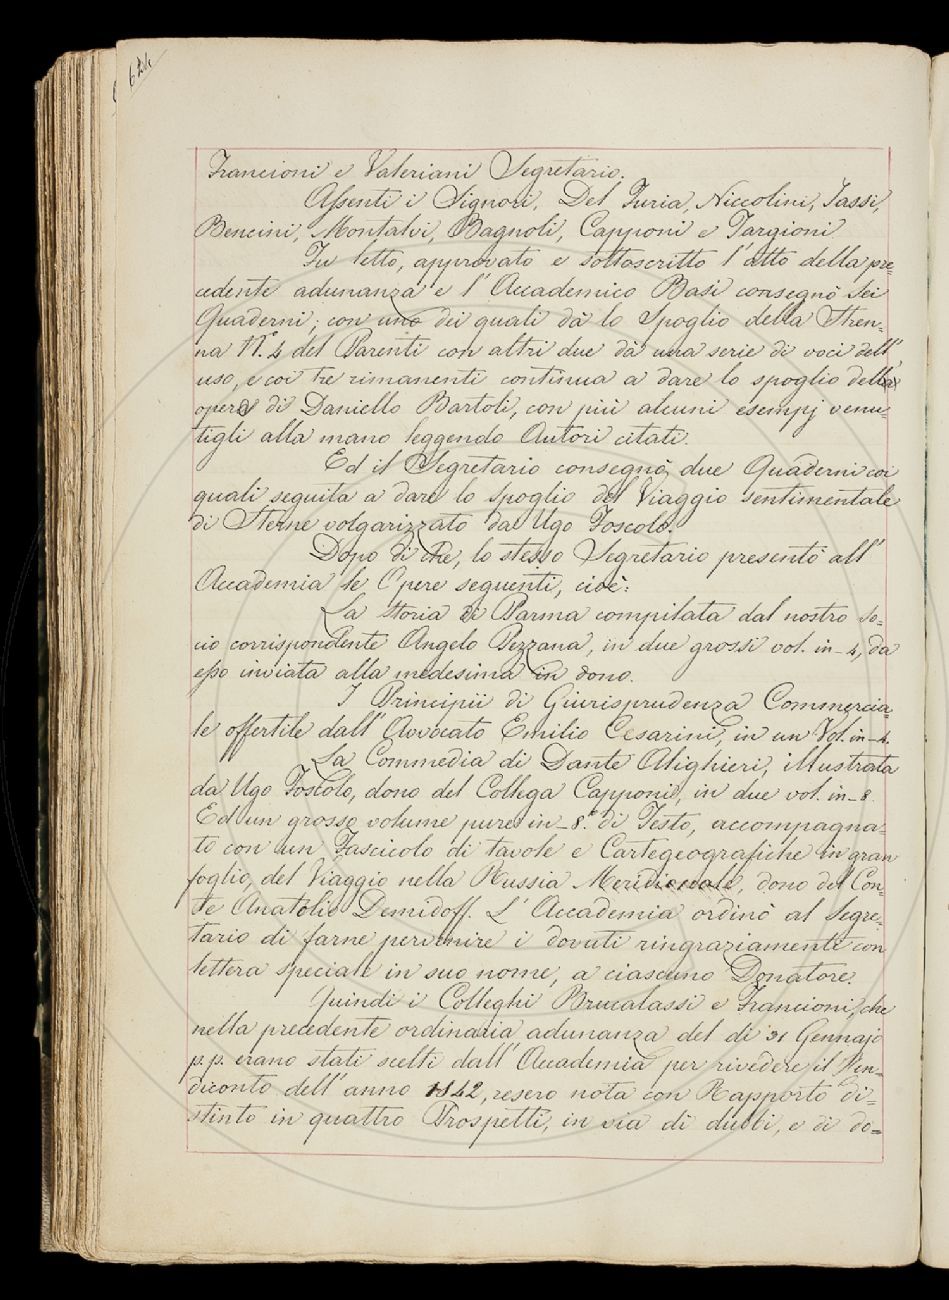 624
Francioni e Valeriani Segretario.
Assenti i Signori. Del Furia, Niccolini, Tassi,
Bencini, Montalvi, Bagnoli, Capponi e Targioni
Fu letto, approvato e sottoscritto l'atto della pre=
cedente adunanza e l'Accademico Basi consegnò sei
Quaderni; con uno dei quali dà lo Spoglio della Stren=
na N.° 4 del Parenti con altri due dà una serie di voci dell'
uso, e coi tre rimanenti continua a dare lo spoglio delle
opere di Daniello Bartoli, con più alcuni esempj venu=
tigli alla mano leggendo Autori citati.
Ed il Segretario consegnò due Quaderni coi
quali seguita a dare lo spoglio del Viaggio sentimentale
di Sterne volgarizzato da Ugo Foscolo.
Dopo di che, lo stesso Segretario presentò all'
Accademia le Opere seguenti, cioè:
La Storia di Parma compilata dal nostro So=
cio corrispondente Angelo Pezzana, in due grossi vol. in-4, da
esso inviata alla medesima in dono.
I Principii di Giurisprudenza Commercia=
le offertile dall'Avvocato Emilio Cesarini, in un Vol. in-4.
La Commedia di Dante Alighieri, illustrata
da Ugo Foscolo, dono del Collega Capponi, in due vol. in-8.
Ed un grosso volume pure in-8.° di Testo, accompagna=
to con un Fascicolo di tavole e Cartegeografiche in gran
foglio, del Viaggio nella Russia Meridionale, dono del Con=
te Anatolio Demidoff. L'Accademia ordinò al Segre=
tario di farne pervenire i dovuti ringraziamenti con
lettera speciale in suo nome, a ciascuno Donatore.
Quindi i Colleghi Brucalassi e Francioni, che
nella precedente ordinaria adunanza del di 31 Gennajo
p.p. erano stati scelti dall'Accademia per rivedere il Ren=
diconto dell'anno 1842, resero nota con Rapporto di=
stinto in quattro Prospetti, in via di dubbi, e di do=